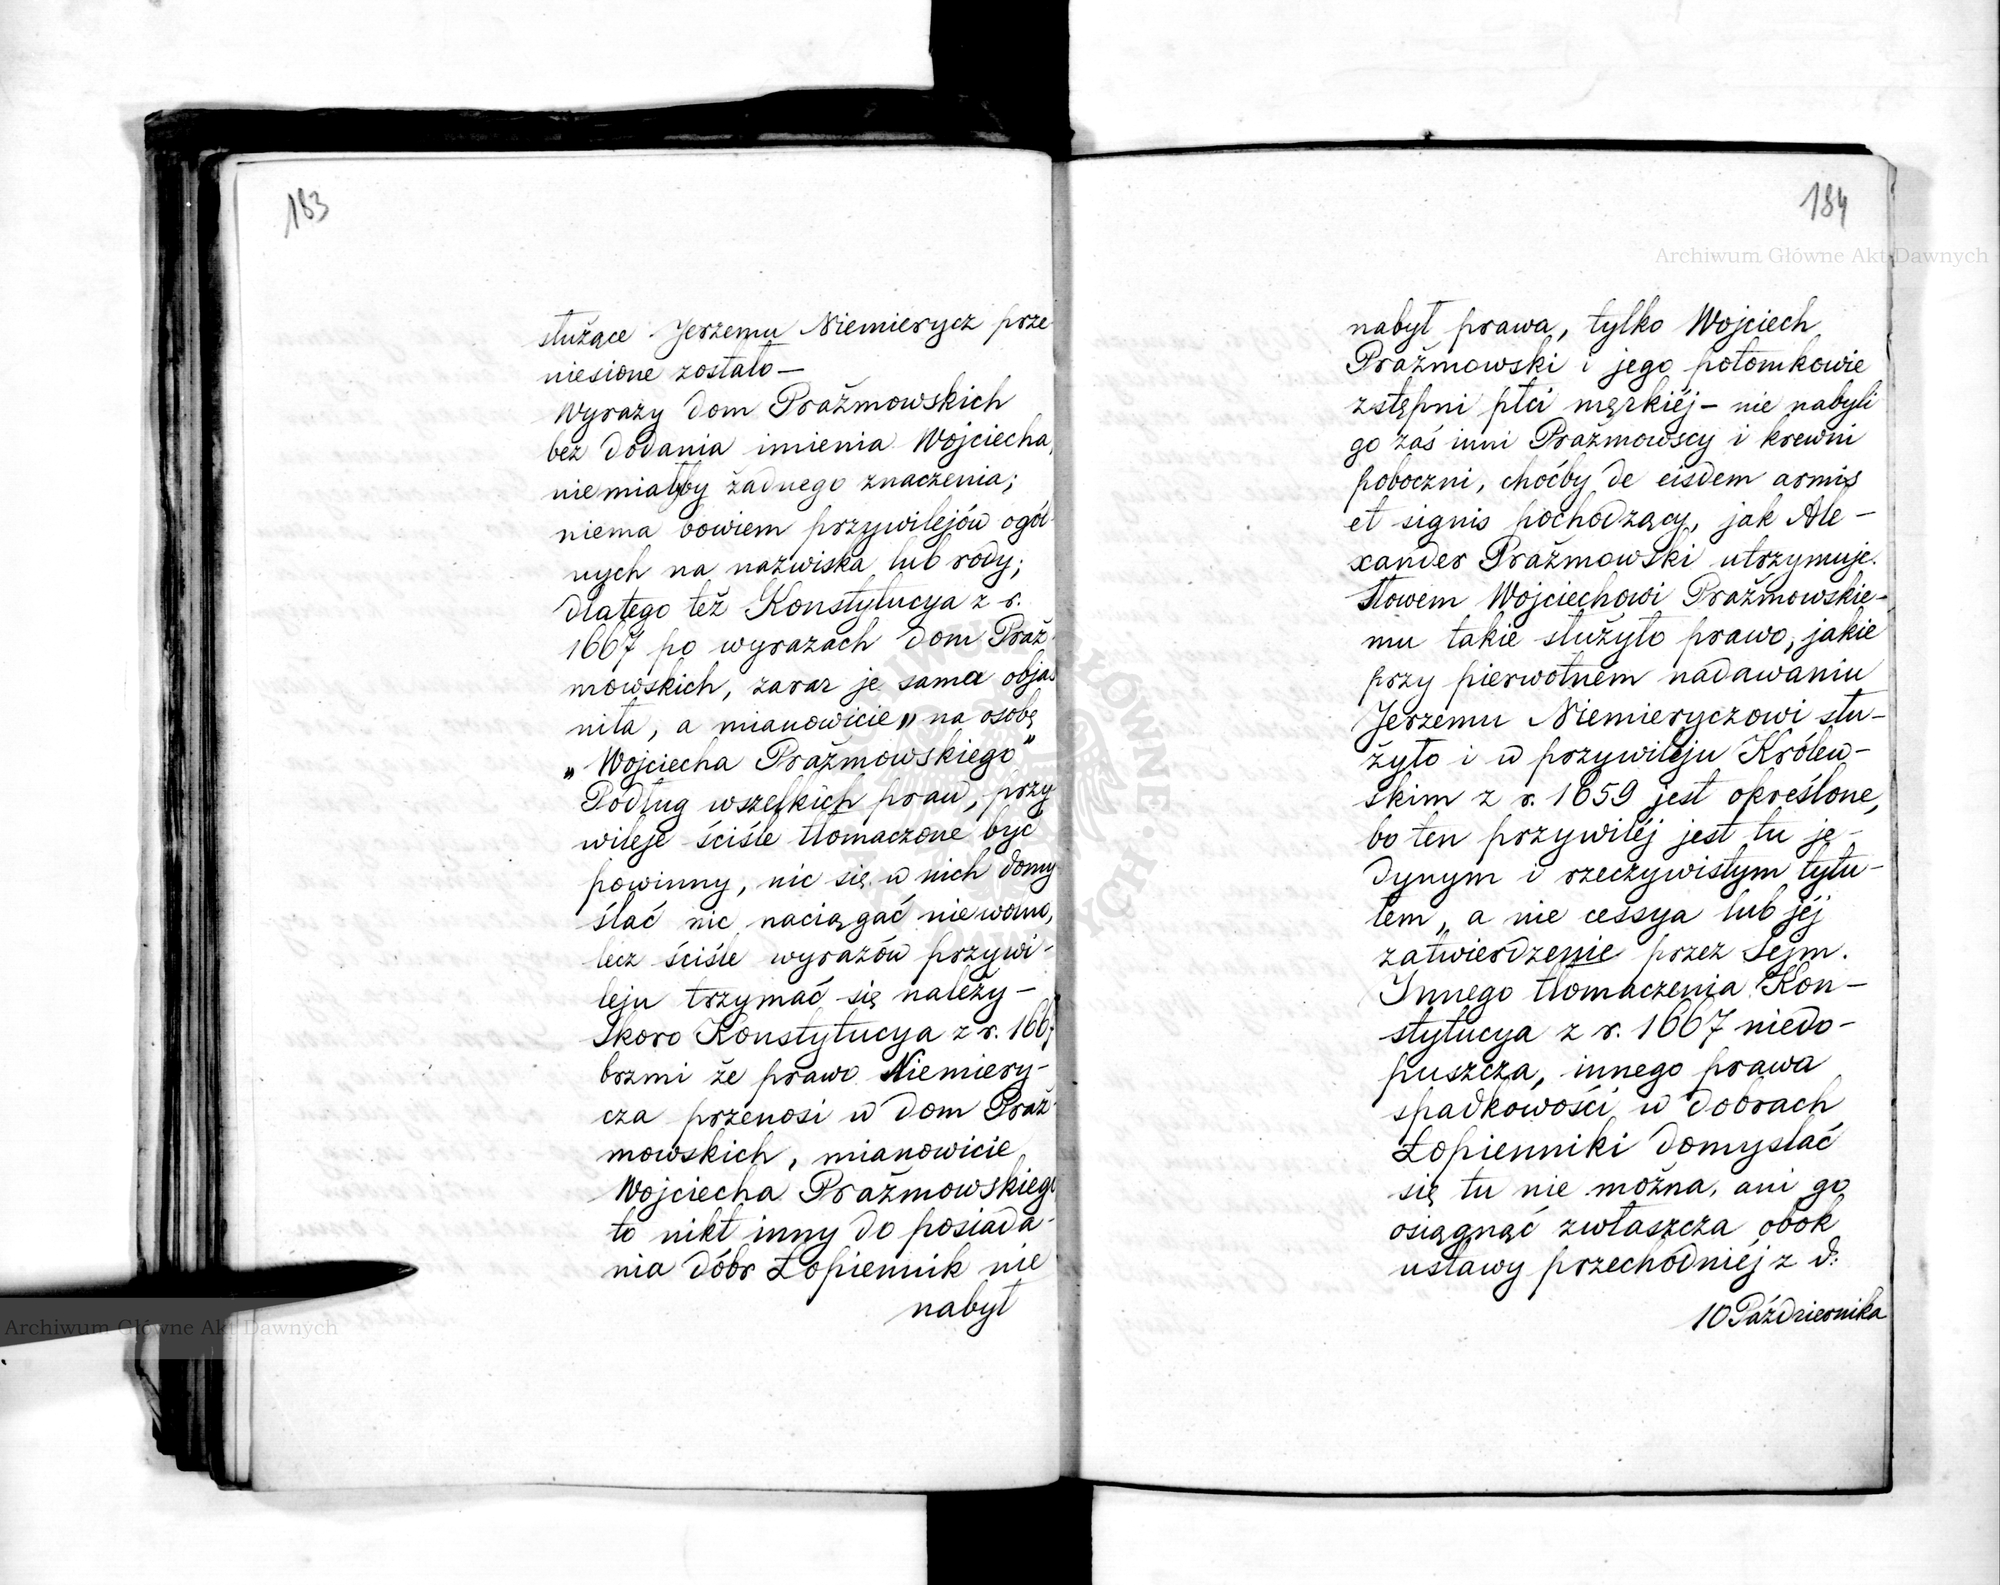 183
służące Jerzemu Niemierycz prze
niesione zostało—
Wyrazy dom Prażmowskich
bez dodania imienia Wojciecha,
niemiałyby żadnego znaczenia;
niema bowiem przywilejów ogól
nych na nazwiska lub rody;
dlatego też Konstytucya z r.
1667 po wyrazach dom Praż
mowskich, zaraz je sama obja
niła, a mianowicie „na osobę
„Wojciecha Prażmowskiego"
Podług wszelkich praw, przy
wileje ściśle tłomaczone być
powinny, nic się w nich domy
ślać nic naciągać niewolno,
lecz ściśle wyrazów przywi-
leju trzymać się należy—
Skoro Konstytucya z r. 1667
brzmi że prawo Niemiery-
cza przenosi w dom Praż-
mowskich, mianowicie
Wojciecha Prażmowskiego
to nikt inny do posiada-
nia dóbr Łopiennik nie
nabył
184
nabył prawa, tylko Wojciech
Prażmowski i jego potomkowie
zstępni płci męzkiéj— nie nabyli
go zaś inni Prażmowscy i krewni
poboczni, choćby de eisdem armis
et signis pochodzący, jak Ale—
xander Prażmowski utrzymuje.
Słowem Wojciechowi Prażmowskie-
mu takie służyło prawo, jakie
przy pierwotnem nadawaniu
Jerzemu Niemieryczowi słu-
żyło i w przywileju Królew-
skim z r. 1659 jest określone,
bo ten przywiléj jest tu je-
dynym i rzeczywistym tytu-
łem, a nie cessya lub jéj
zatwierdzenie przez Sejm.
Innego tłomaczenia Kon—
stytucya z r. 1667 niedo-
puszcza, innego prawa
spadkowości w dobrach
Łopienniki domyslać
się tu nie można, ani go
osiągnąć zwłaszcza obok
ustawy przechodniéj z d:
10 Października
Archiwum Główne Akt Dawnych
Archiwum Główne Akt Dawnych